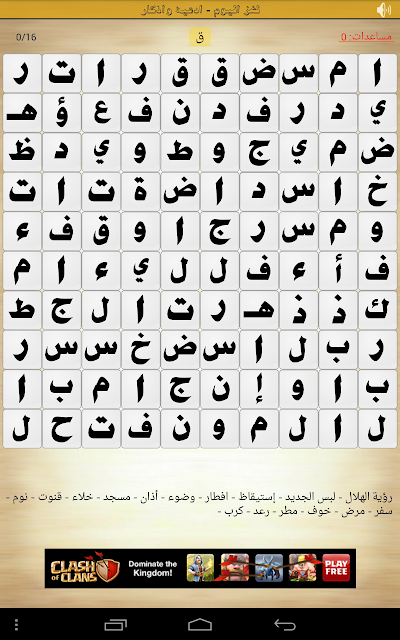 لغز اليوم - ادعية واذكار
مساعدات: 0 ق 0/16
ا م س ض ق ق ر ا ت ر
ي د ر ف د ن ف ع ؤ هـ
ض م ي ج و ط و ي د ظ
خ ا س د ا ض ة ت ا ت
و م س ر ج ا و ق ف ء
ف أ ء ف ل ل ي ء ا م
ك ذ ذ هـ ر ت ا ل ج ط
ر ب ل ا س ض خ س س ر
ب ا و إ ن ج ا م ب ا
ل ا ل م و ن ف ت ح ل
رؤية الهلال - لبس الجديد - إستيقاظ - افطار - وضوء - أذان - مسجد - خلاء - قنوت - نوم -
سفر - مرض - خوف - مطر - رعد - كرب -
CLASH OF CLANS
Dominate the Kingdom!
PLAY FREE